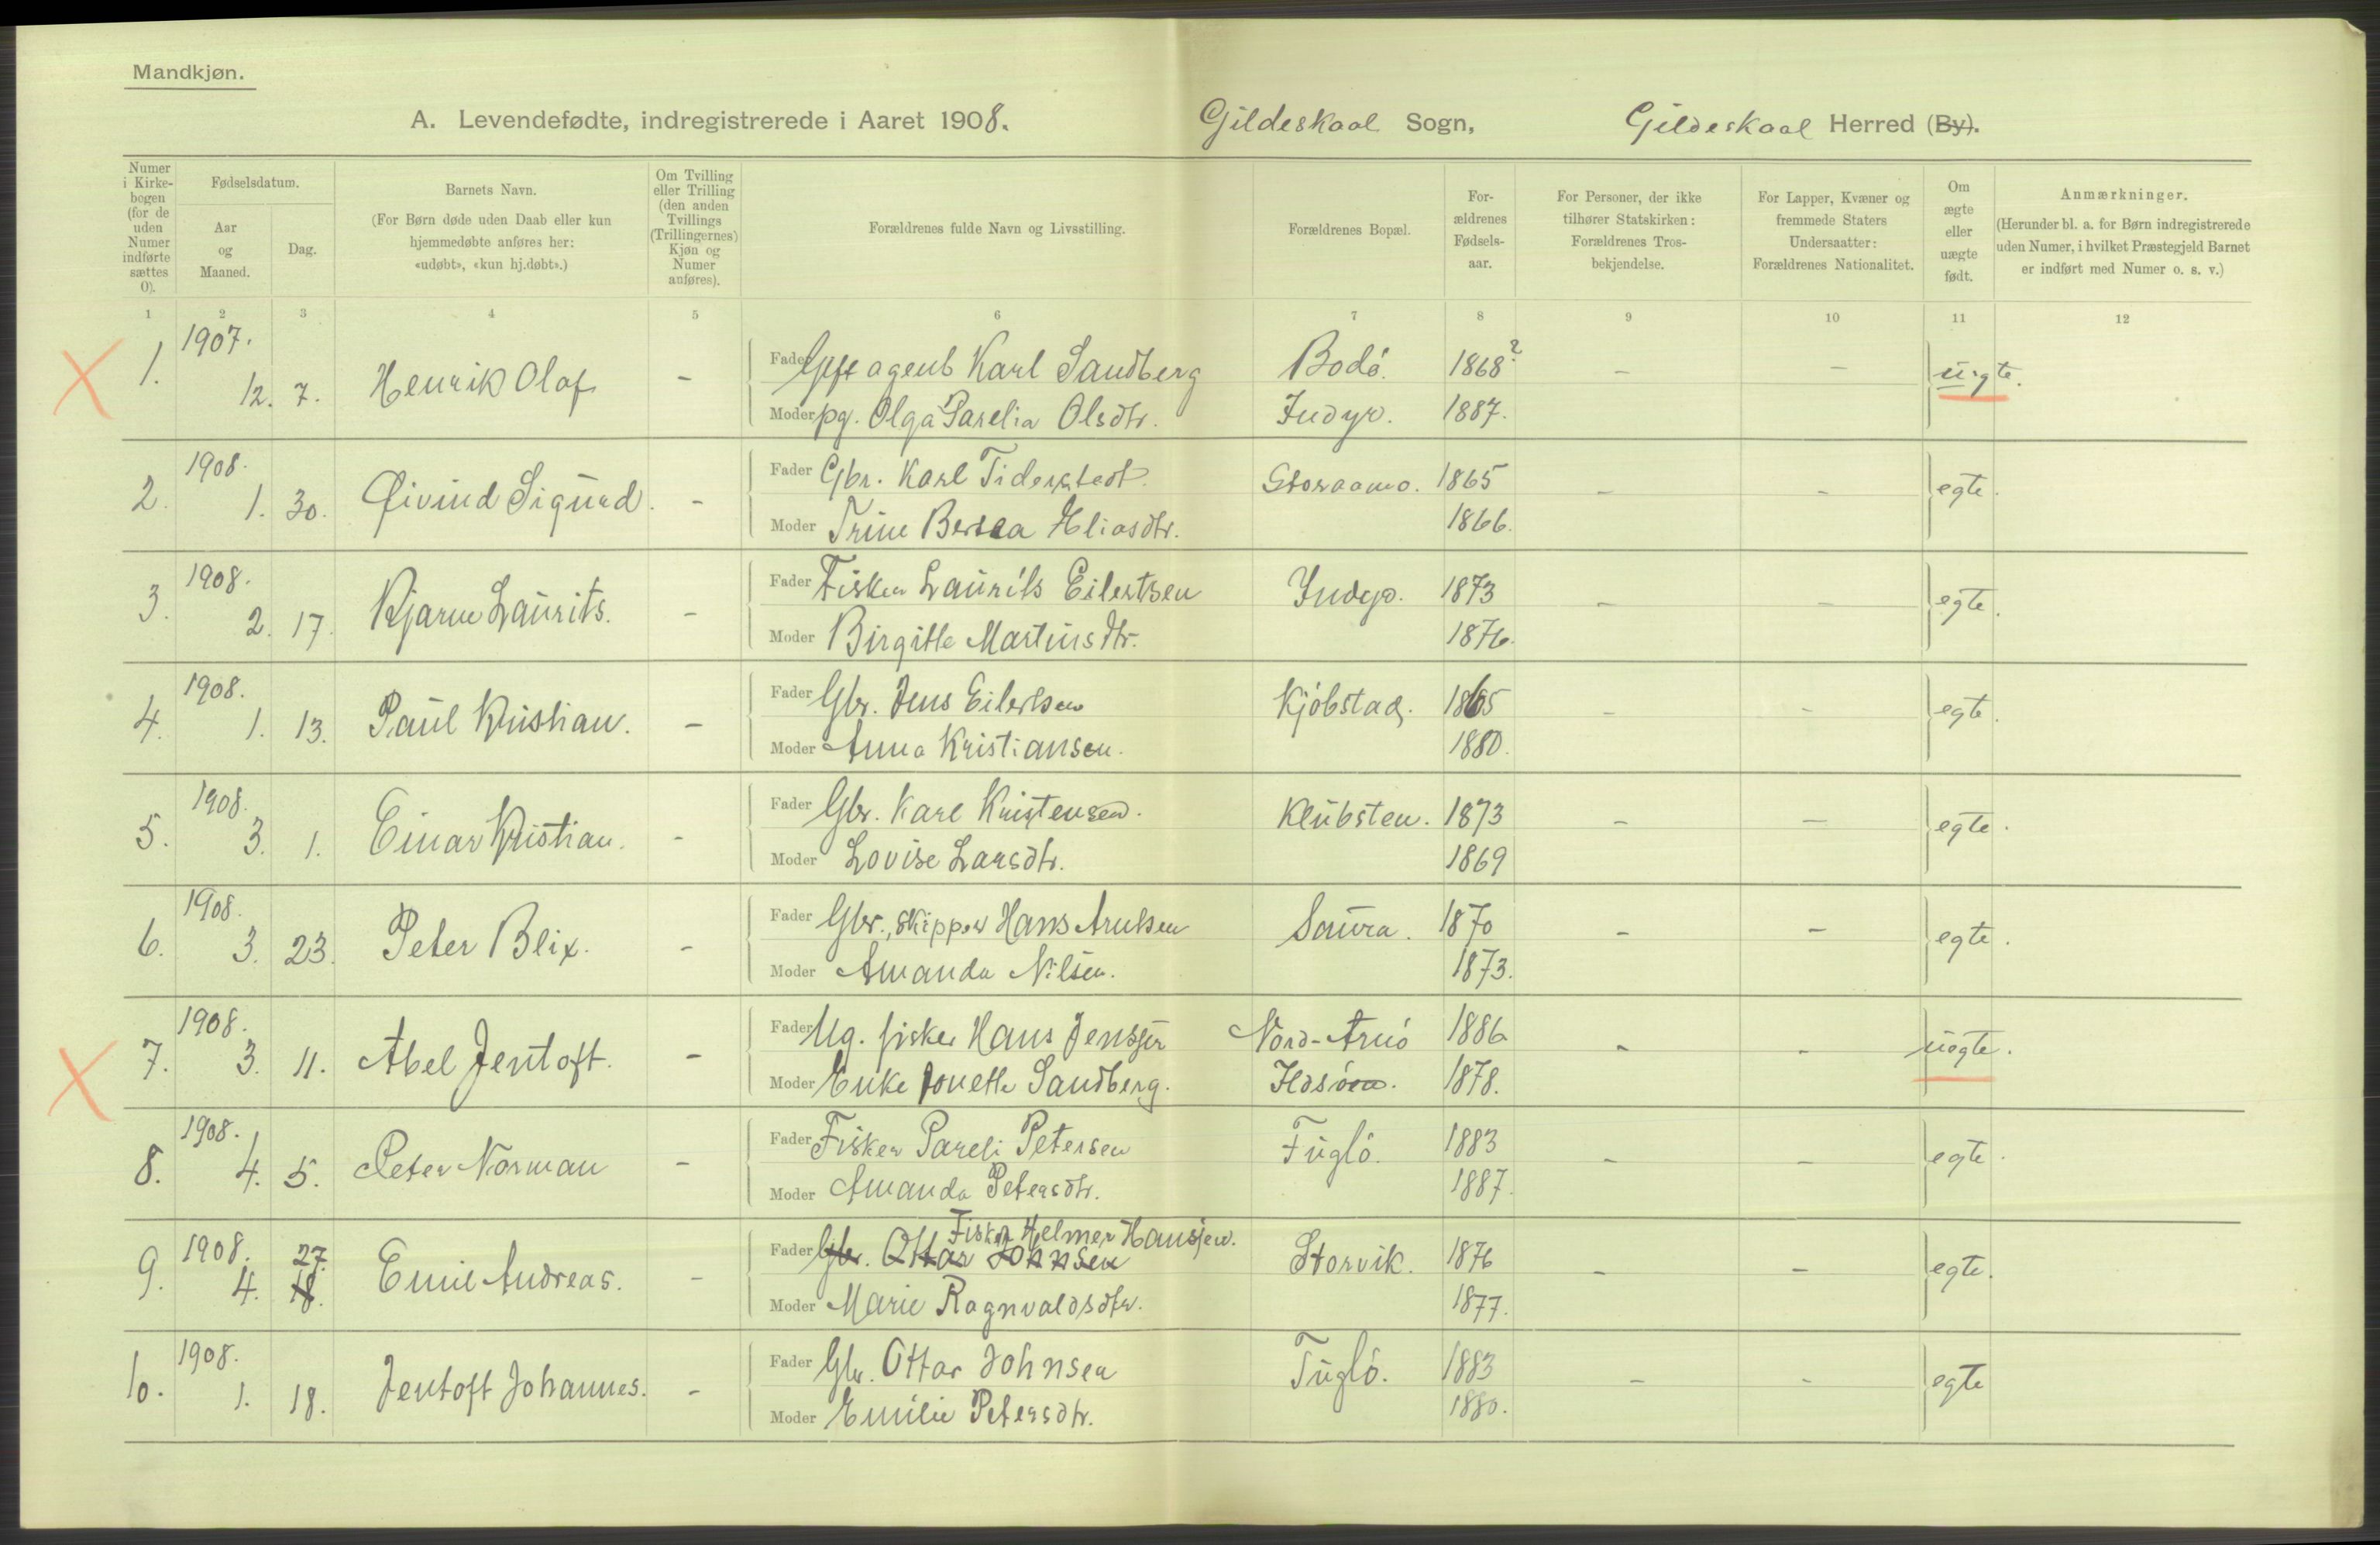 Mandkjøn.
A. Levendefødte, indregistrerede i Aaret 1908. Gildeskaal Sogn, Gildeskaal Herred (By).
Numer i Kirkebogen (for de uden Numer indførte sættes 0).
Fødselsdatum.
Aar og Maaned.
Dag.
Barnets Navn.
(For Børn døde uden Daab eller kun hjemmedøbte anføres her: «udøbt», «kun hj.døbt».)
Om Tvilling eller Trilling (den anden Tvillings (Trillingernes) Kjøn og Numer anføres).
Forældrenes fulde Navn og Livsstilling.
Forældrenes Bopæl.
Forældrenes Fødselsaar.
For Personer, der ikke tilhører Statskirken: Forældrenes Trosbekjendelse.
For Lapper, Kvæner og fremmede Staters Undersaatter: Forældrenes Nationalitet.
Om ægte eller uægte født.
Anmærkninger.
(Herunder bl. a. for Børn indregistrerede uden Numer, i hvilket Præstegjeld Barnet er indført med Numer o. s. v.)
1 2 3 4 5 6 7 8 9 10 11 12
1. 1907. 12. 7. Henrik Olaf - Fader agent Karl Sandberg Bodó. 1868? - - uegte.
Moder pg. Olga Parelia Olsdtr. Indyr. 1887.
2. 1908. 1. 30. Øivind Sigurd. - Fader Gbr. Karl Tiderstedt. 1865 - - egte.
Moder Trine Berea Eliasdtr. 1866.
3. 1908. 2. 17. Bjarne Laurits. - Fader Fisker Laurits Eilertsen Indyr. 1873 - - egte.
Moder Birgitte Martinsdtr. 1876.
4. 1908. 1. 13. Paul Kristian. - Fader Gbr. Jens Eilertsen Kjóbstad. 1865 - - egte.
Moder Anna Kristiansen. 1880.
5. 1908. 3. 1. Einar Kristian. - Fader Gbr. Karl Kristensen. Klubsten. 1873 - - egte.
Moder Lovise Larsdtr. 1869
6. 1908. 3. 23. Peter Blix. - Fader Gbr., skipper Hans Arntsen Saura. 1870 - - egte.
Moder Amanda Nilsen. 1873.
7. 1908. 3. 11. Abel Jentoft. - Fader Ug. fisker Hans Jenssen Nord-Arnó 1886 - - uegte.
Moder Enke Jonette Sandberg. 1878.
8. 1908. 4. 5. Peter Norman - Fader Fisker Pareli Petersen Fugló. 1883 - - egte.
Moder Amanda Petersdtr. 1887.
Fisker Helmer Hansen.
9. 1908. 4. 27. 18. Emil Andreas. - Fader Gbr. Ottar Johnsen Storvik. 1876 - - egte.
Moder Marie Ragnvaldsdtr. 1877.
10. 1908. 1. 18. Jentoft Johannes. - Fader Gbr. Ottar Johnsen Fugló. 1883 - - egte
Moder Emilie Petersdtr. 1880.